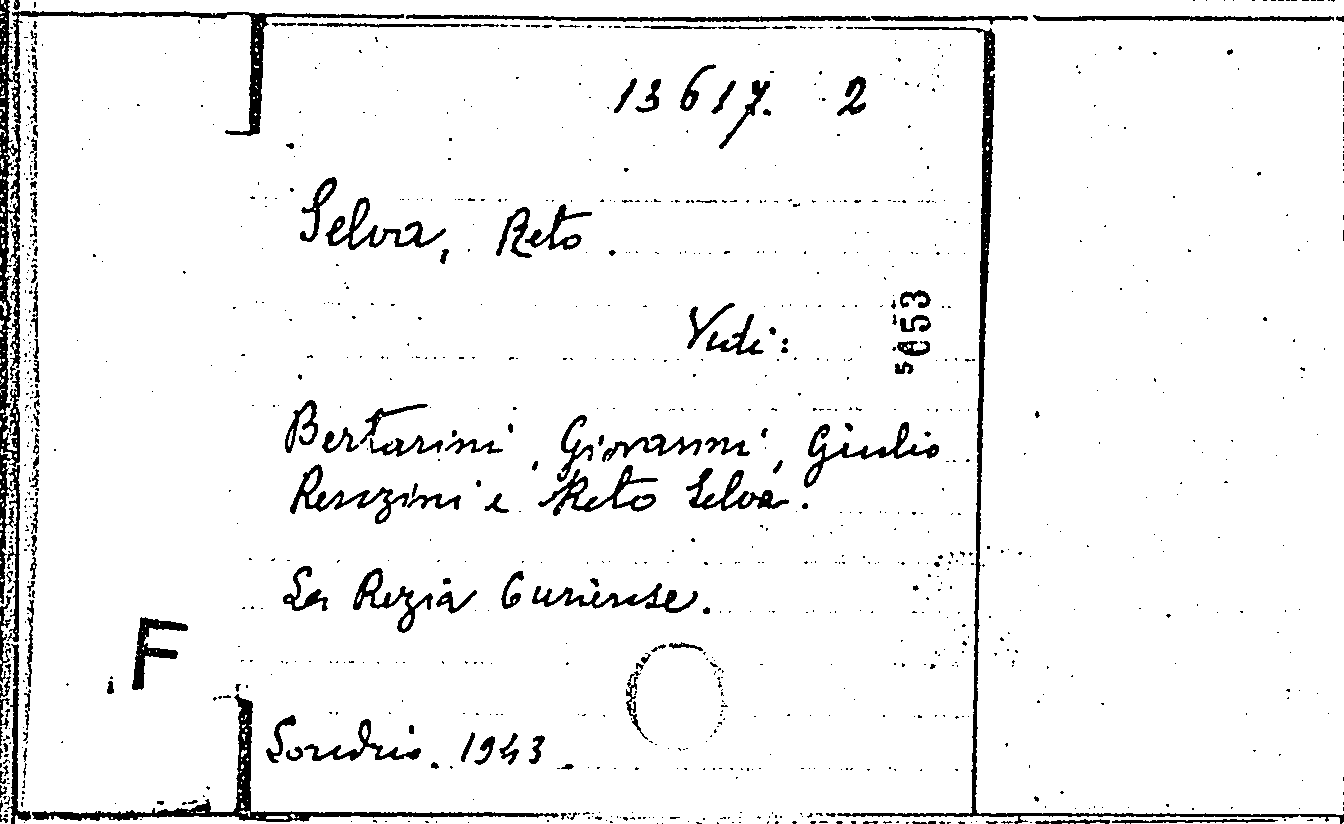 13617. 2
Selva, Reto.
Vedi:
5053
Bertarini, Giovanni, Giulio
e Reto Selva.
La Rezia Curiense.
F
Sondrio. 1943.